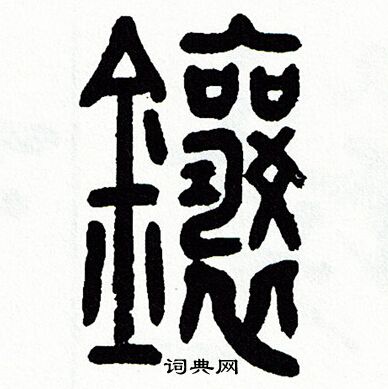 鑲
词典网